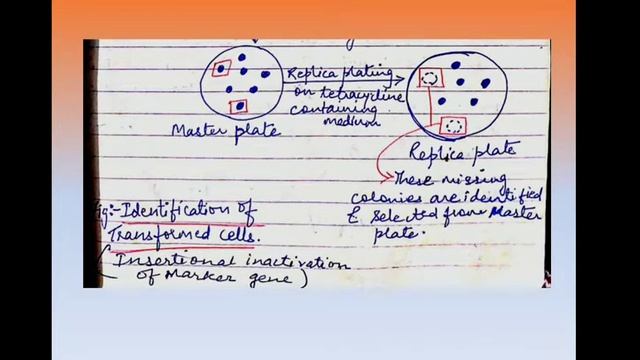 Replica plating
on tetracycline
containing
medium
Master plate
Replica plate
These missing
colonies are identified
& selected from Master
plate.
Fig:- Identification of
Transformed cells.
(Insertional inactivation
of Marker gene)